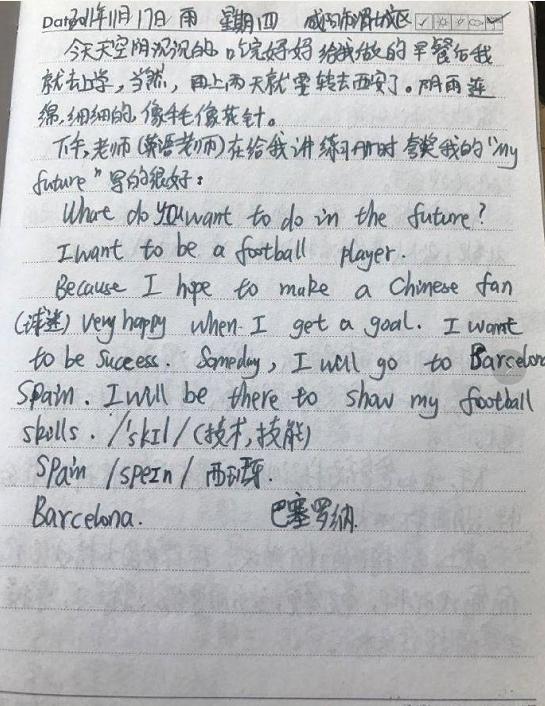 Date 2021年11月17日 雨 星期四 成都市
今天天空阴沉沉的,吃完好好给我做的早餐后我
就去上学,当然,再上两天就要转去西安了。阴雨连
绵,细细的,像毛像花针。
下午,老师(英语老师)在给我讲练习册时夸奖我的"my
future"写的很好:
What do you want to do in the future?
I want to be a football player.
Because I hope to make a Chinese fan
(球迷) very happy when I get a goal. I want
to be Success. Someday, I will go to Barcelona
Spain. I will be there to show my football
skills. /'skɪl/ (技术,技能)
Spain /speɪn/ 西班牙.
Barcelona. 巴塞罗纳.